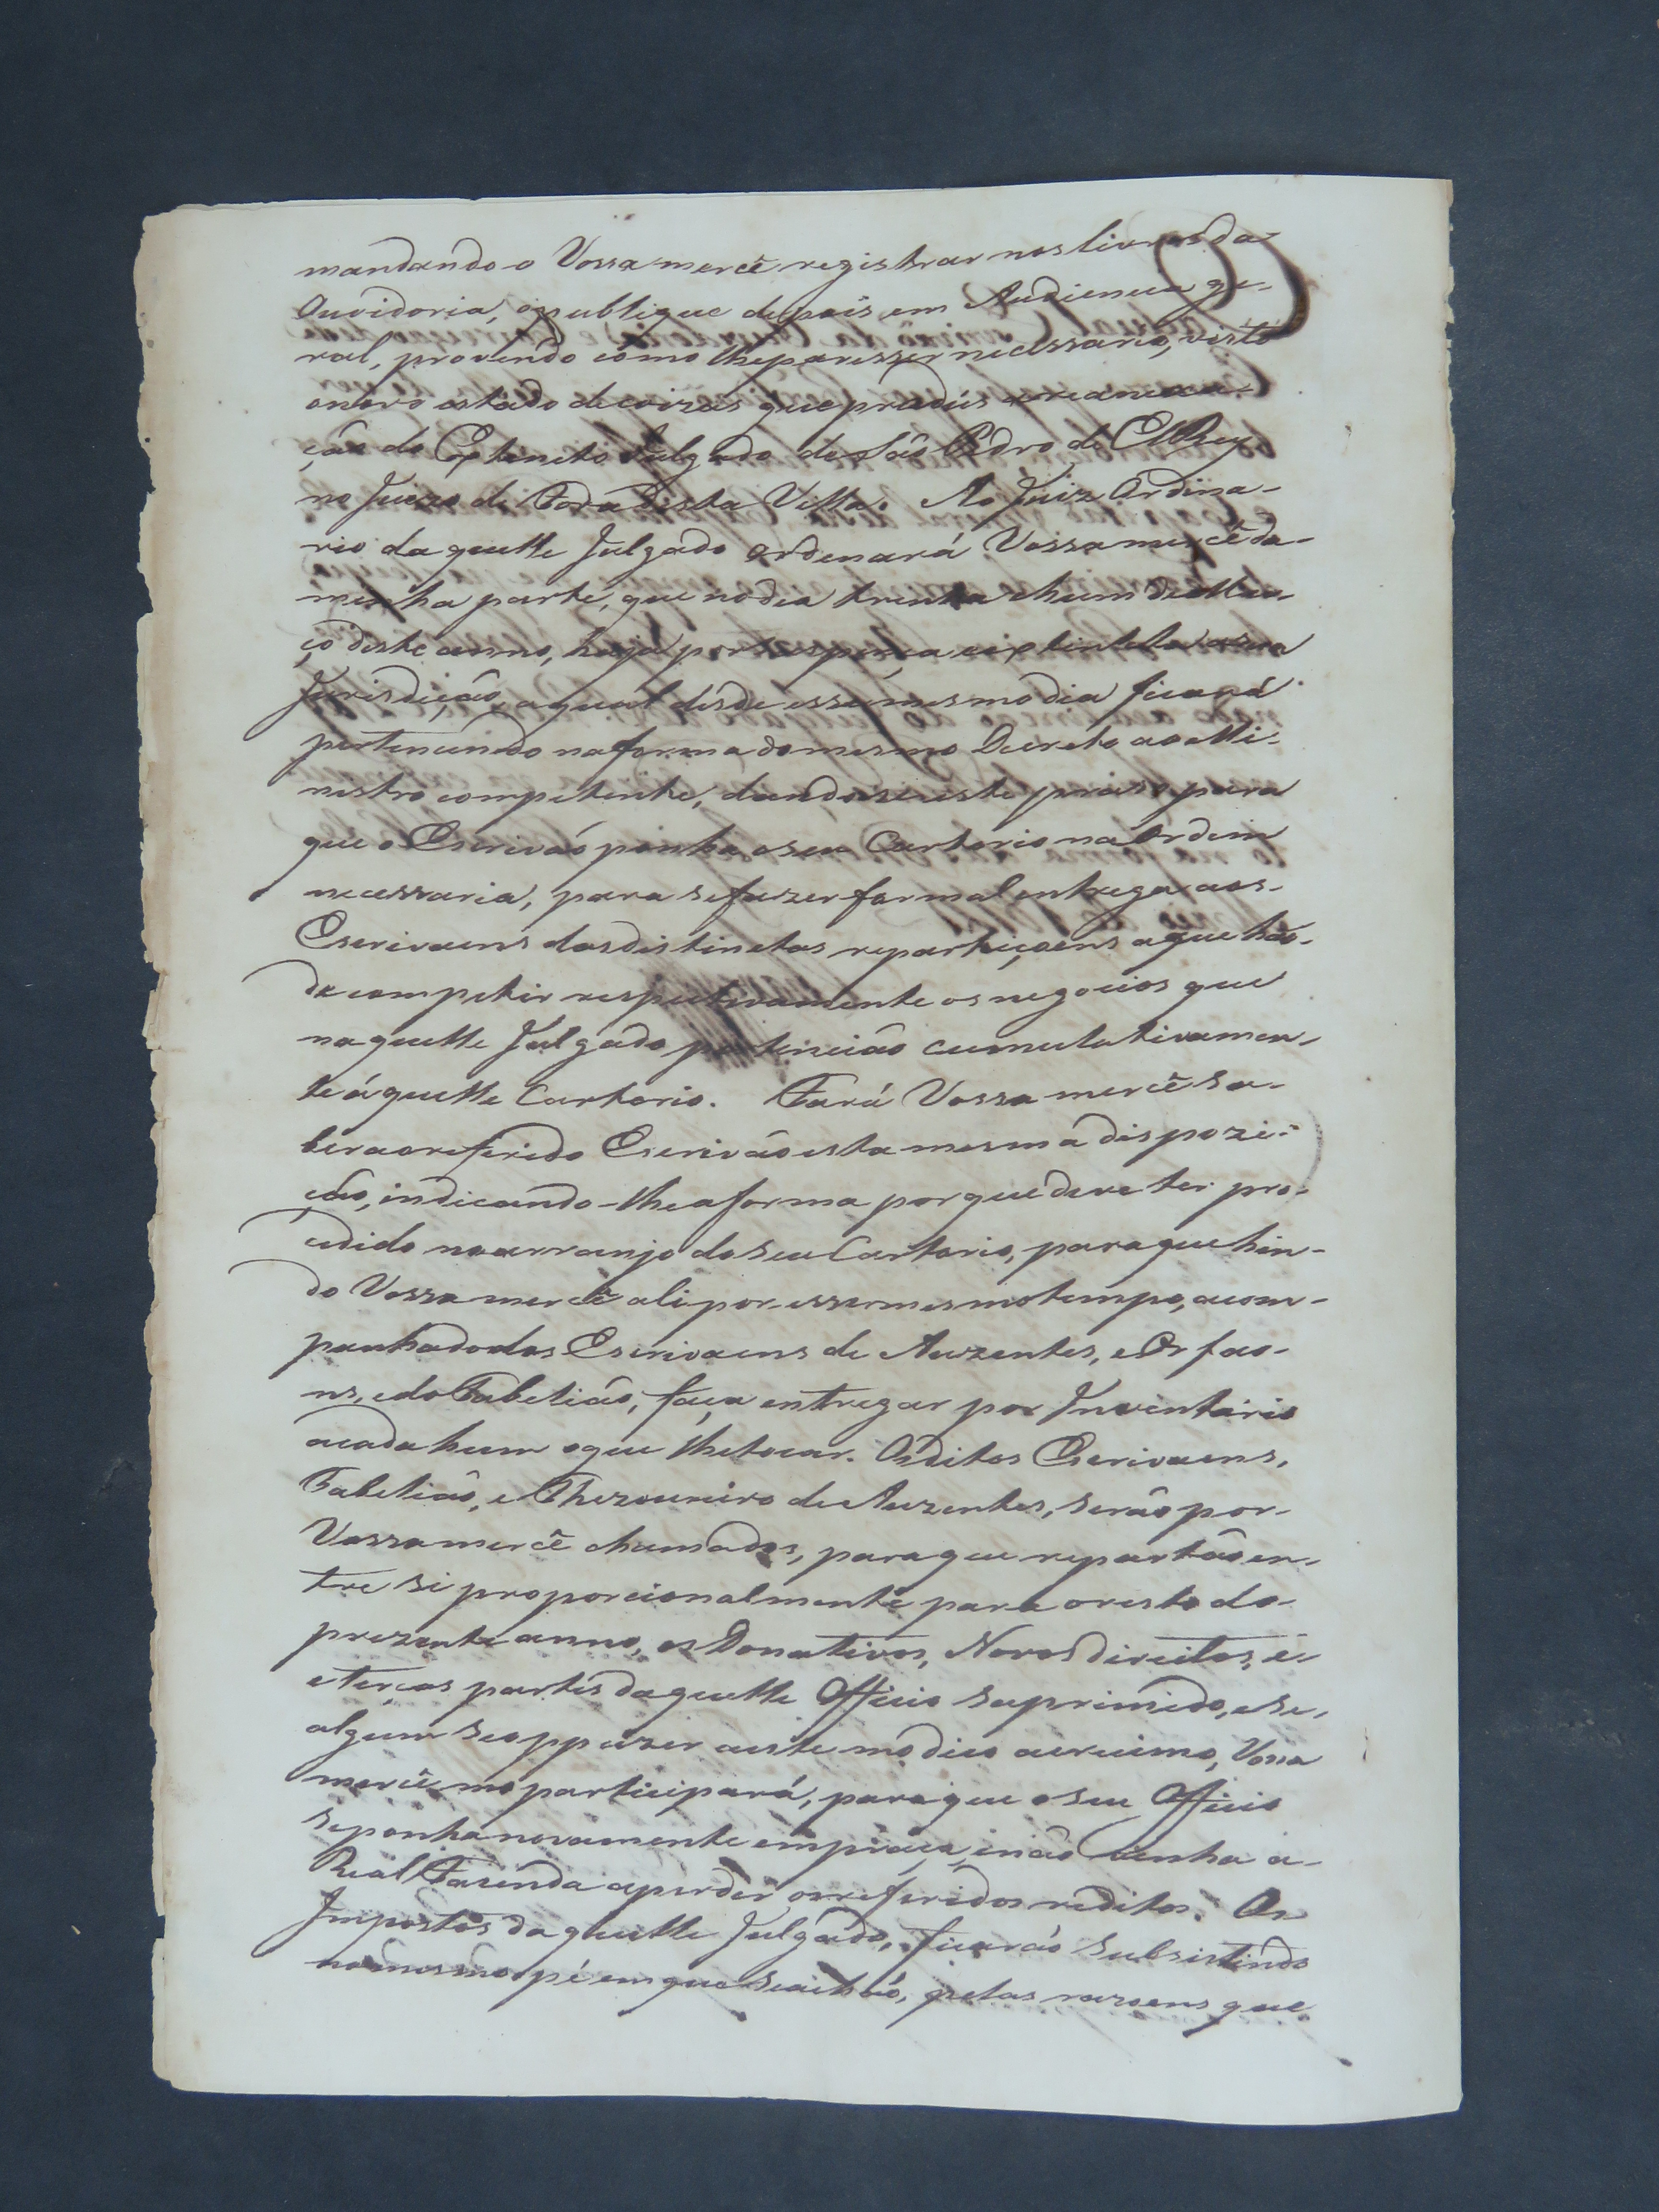 mandando-o Vossamercê registrar nos livros da
Ouvidoria, o publique depois em Audiencia ge-
ral, provendo como lhe paresser necessario, visto
onovo estado de coizas que produs areanexa-
ção do Extincto Julgado de São Pedro de ElRey
no Juizo de Fora desta Villa. Ao Juiz Ordina-
rio daquelle Julgado ordenará Vossamercê da
minha parte, que no dia trinta ehum de Mar-
ço deste anno, haja por suspença eextincta asua
Jurisdição, aqual desde esse mesmo dia ficará
pertencendo naforma domesmo Decreto ao Mi-
nistro competente, dandose este prazo para
que o Escrivão ponha oseu Cartorio na Ordem
necessaria, para sefazer formal entrega aos
Escrivaens dasdistinctas repartiçoens aque hão
de competir respectivamente os negocios que
naquelle Julgado pertencião cumulativamen-
te áquelle Cartorio. Fará Vossa mercê sa-
ber ao referido Escrivão esta mesma dispozi-
ção, indicando-lhe aforma porque deve ter pro-
cedido no arranjo do seu Cartorio, paraque hin-
do Vossa mercê ali por esse mesmo tempo, acom-
panhado dos Escrivaens de Auzentes, e Orfao-
ns, edo Tabelião, faça entregar por Inventario
acada hum oque lhe tocar. Os ditos Escrivaens,
Tabelião, e Thezoureiro de Auzentes, serão por
Vossamercê chamados, paraque repartão en-
tre si proporcionalmente para o resto do
prezente anno, os Donativos, Novos direitos, e
eterças partes daquelle Officio suprimido, ese
algum se oppuzer aeste modico acrecimo, Vossa
mercê mo participará, paraque o seu Officio
seponha novamente empraça, enão venha a
Real Fazenda aperder os referidos reditos. Os
Impostos daquelle Julgado, ficarão subsistindo
no mesmo pé em que se achão, pelas razoens que